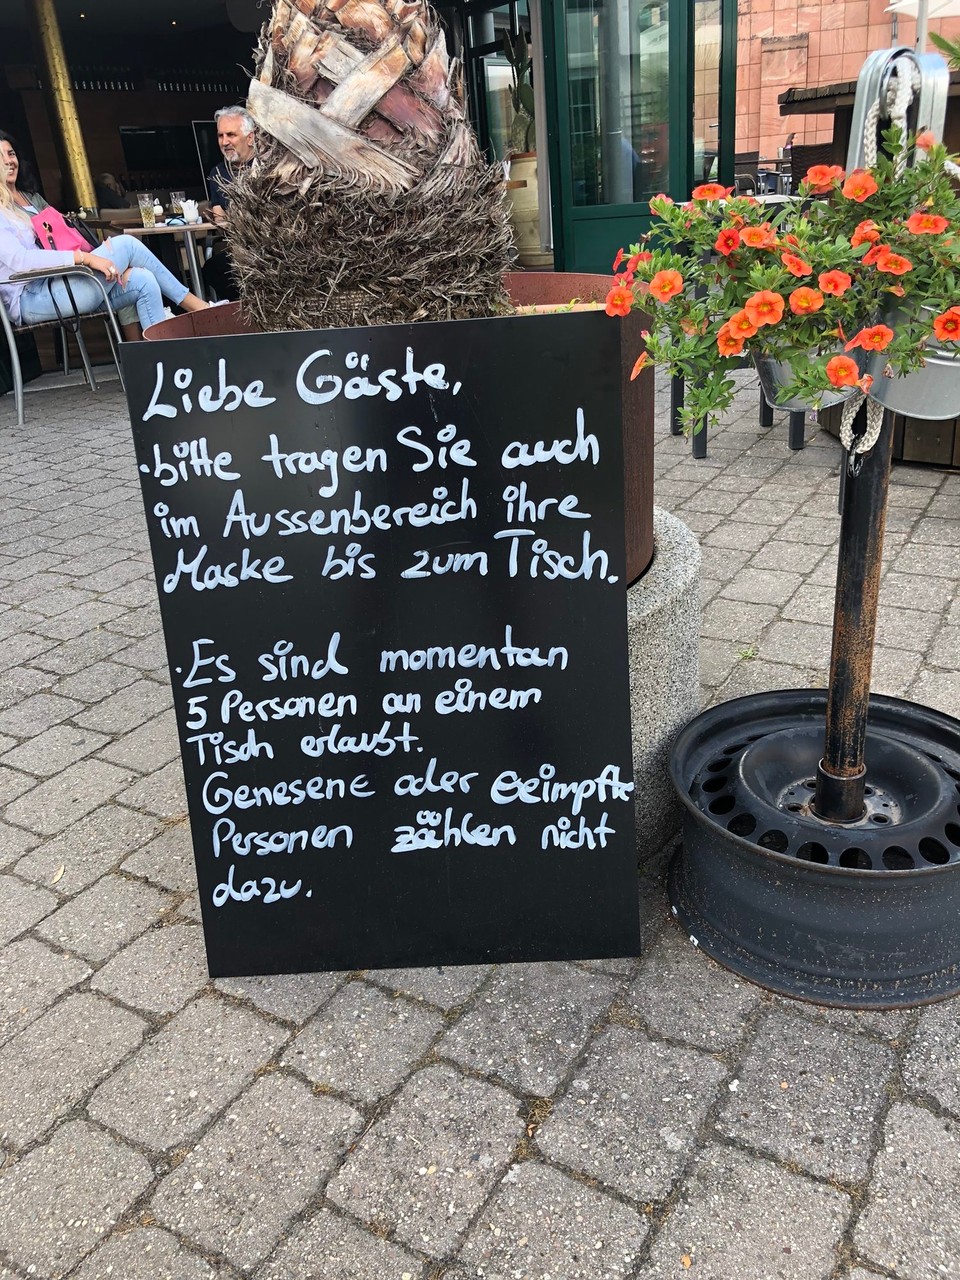 Liebe Gäste,
·bitte tragen Sie auch
im Aussenbereich ihre
Maske bis zum Tisch.
·Es sind momentan
5 Personen an einem
Tisch erlaubt.
Genesene oder Geimpfte
Personen zählen nicht
dazu.